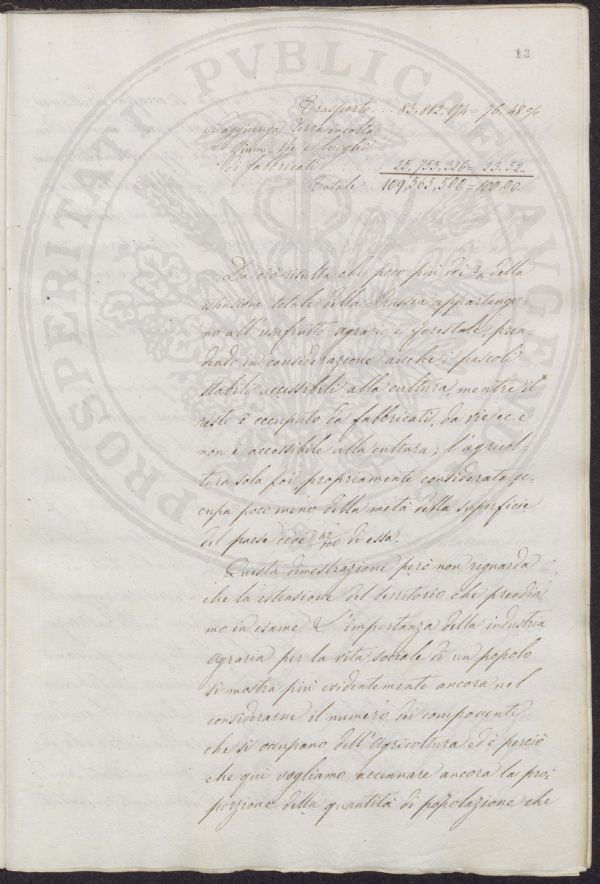 13
Trasporto... 83,812,174 = 76.48%
Si aggiunga Terra incolta
Fiumi, Vie e luoghi
fabbricati 25,753,326 = 23.52.
Totale.. 109,565,500 = 100.00.
Da ciò risulta che poco più dei 3/4 della
estensione totale della Prussia appartengo-
no all'usufrutto agrario e forestale, pren-
dendo in considerazione anche i pascoli
stabili accessibili alla cultura, mentre il
resto è occupato da fabbricati, da vie ec. e
non è accessibile alla cultura; l'agricol-
tura sola poi propriamente considerata oc-
cupa poco meno della metà della superficie
del paese cioè /100 di essa.
Questa dimostrazione però non riguarda
che la estensione del territorio che prendia
mo in esame. L'importanza della industria
agraria per la vita sociale di un popolo
si mostra più evidentemente ancora nel
considerarne il numero dei componenti
che si occupano dell'agricoltura ed è perciò
che qui vogliamo accennare ancora la pro-
porzione della quantità di popolazione che
PROSPERITATI PUBLICAE AUGENDAE